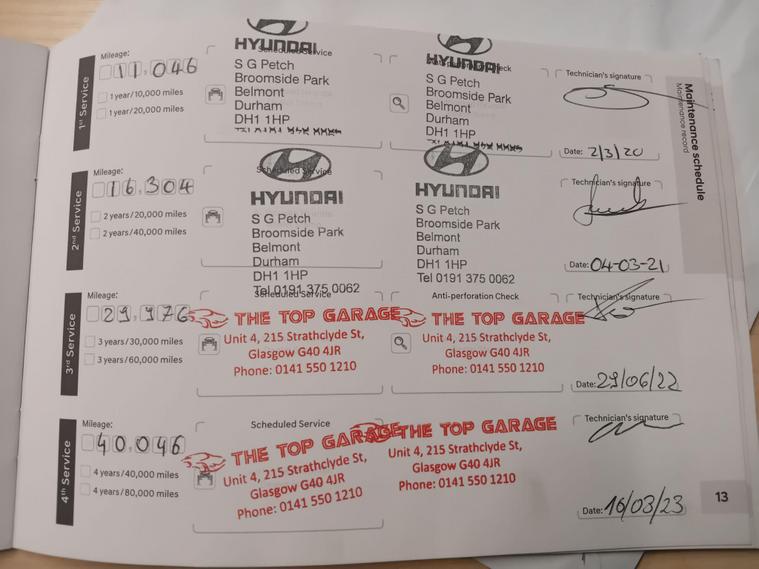 Maintenance schedule
Maintenance record
1st Service
Mileage:
11,046
1 year/10,000 miles
1 year/20,000 miles
HYUNDAI
Scheduled Service
S G Petch
Broomside Park
Belmont
Durham
DH1 1HP
HYUNDAI
S G Petch
Broomside Park
Belmont
Durham
DH1 1HP
Technician's signature
Date: 2/3/20
2nd Service
Mileage:
16,304
2 years/20,000 miles
2 years/40,000 miles
Scheduled Service
HYUNDAI
S G Petch
Broomside Park
Belmont
Durham
DH1 1HP
Tel 0191 375 0062
HYUNDAI
S G Petch
Broomside Park
Belmont
Durham
DH1 1HP
Tel 0191 375 0062
Technician's signature
Date: 04-03-21
3rd Service
Mileage:
29,976
3 years/30,000 miles
3 years/60,000 miles
Scheduled Service
THE TOP GARAGE
Unit 4, 215 Strathclyde St,
Glasgow G40 4JR
Phone: 0141 550 1210
Anti-perforation Check
THE TOP GARAGE
Unit 4, 215 Strathclyde St,
Glasgow G40 4JR
Phone: 0141 550 1210
Technician's signature
Date: 29/06/22
4th Service
Mileage:
40,046
4 years/40,000 miles
4 years/80,000 miles
Scheduled Service
THE TOP GARAGE
Unit 4, 215 Strathclyde St,
Glasgow G40 4JR
Phone: 0141 550 1210
THE TOP GARAGE
Unit 4, 215 Strathclyde St,
Glasgow G40 4JR
Phone: 0141 550 1210
Technician's signature
Date: 16/03/23
13